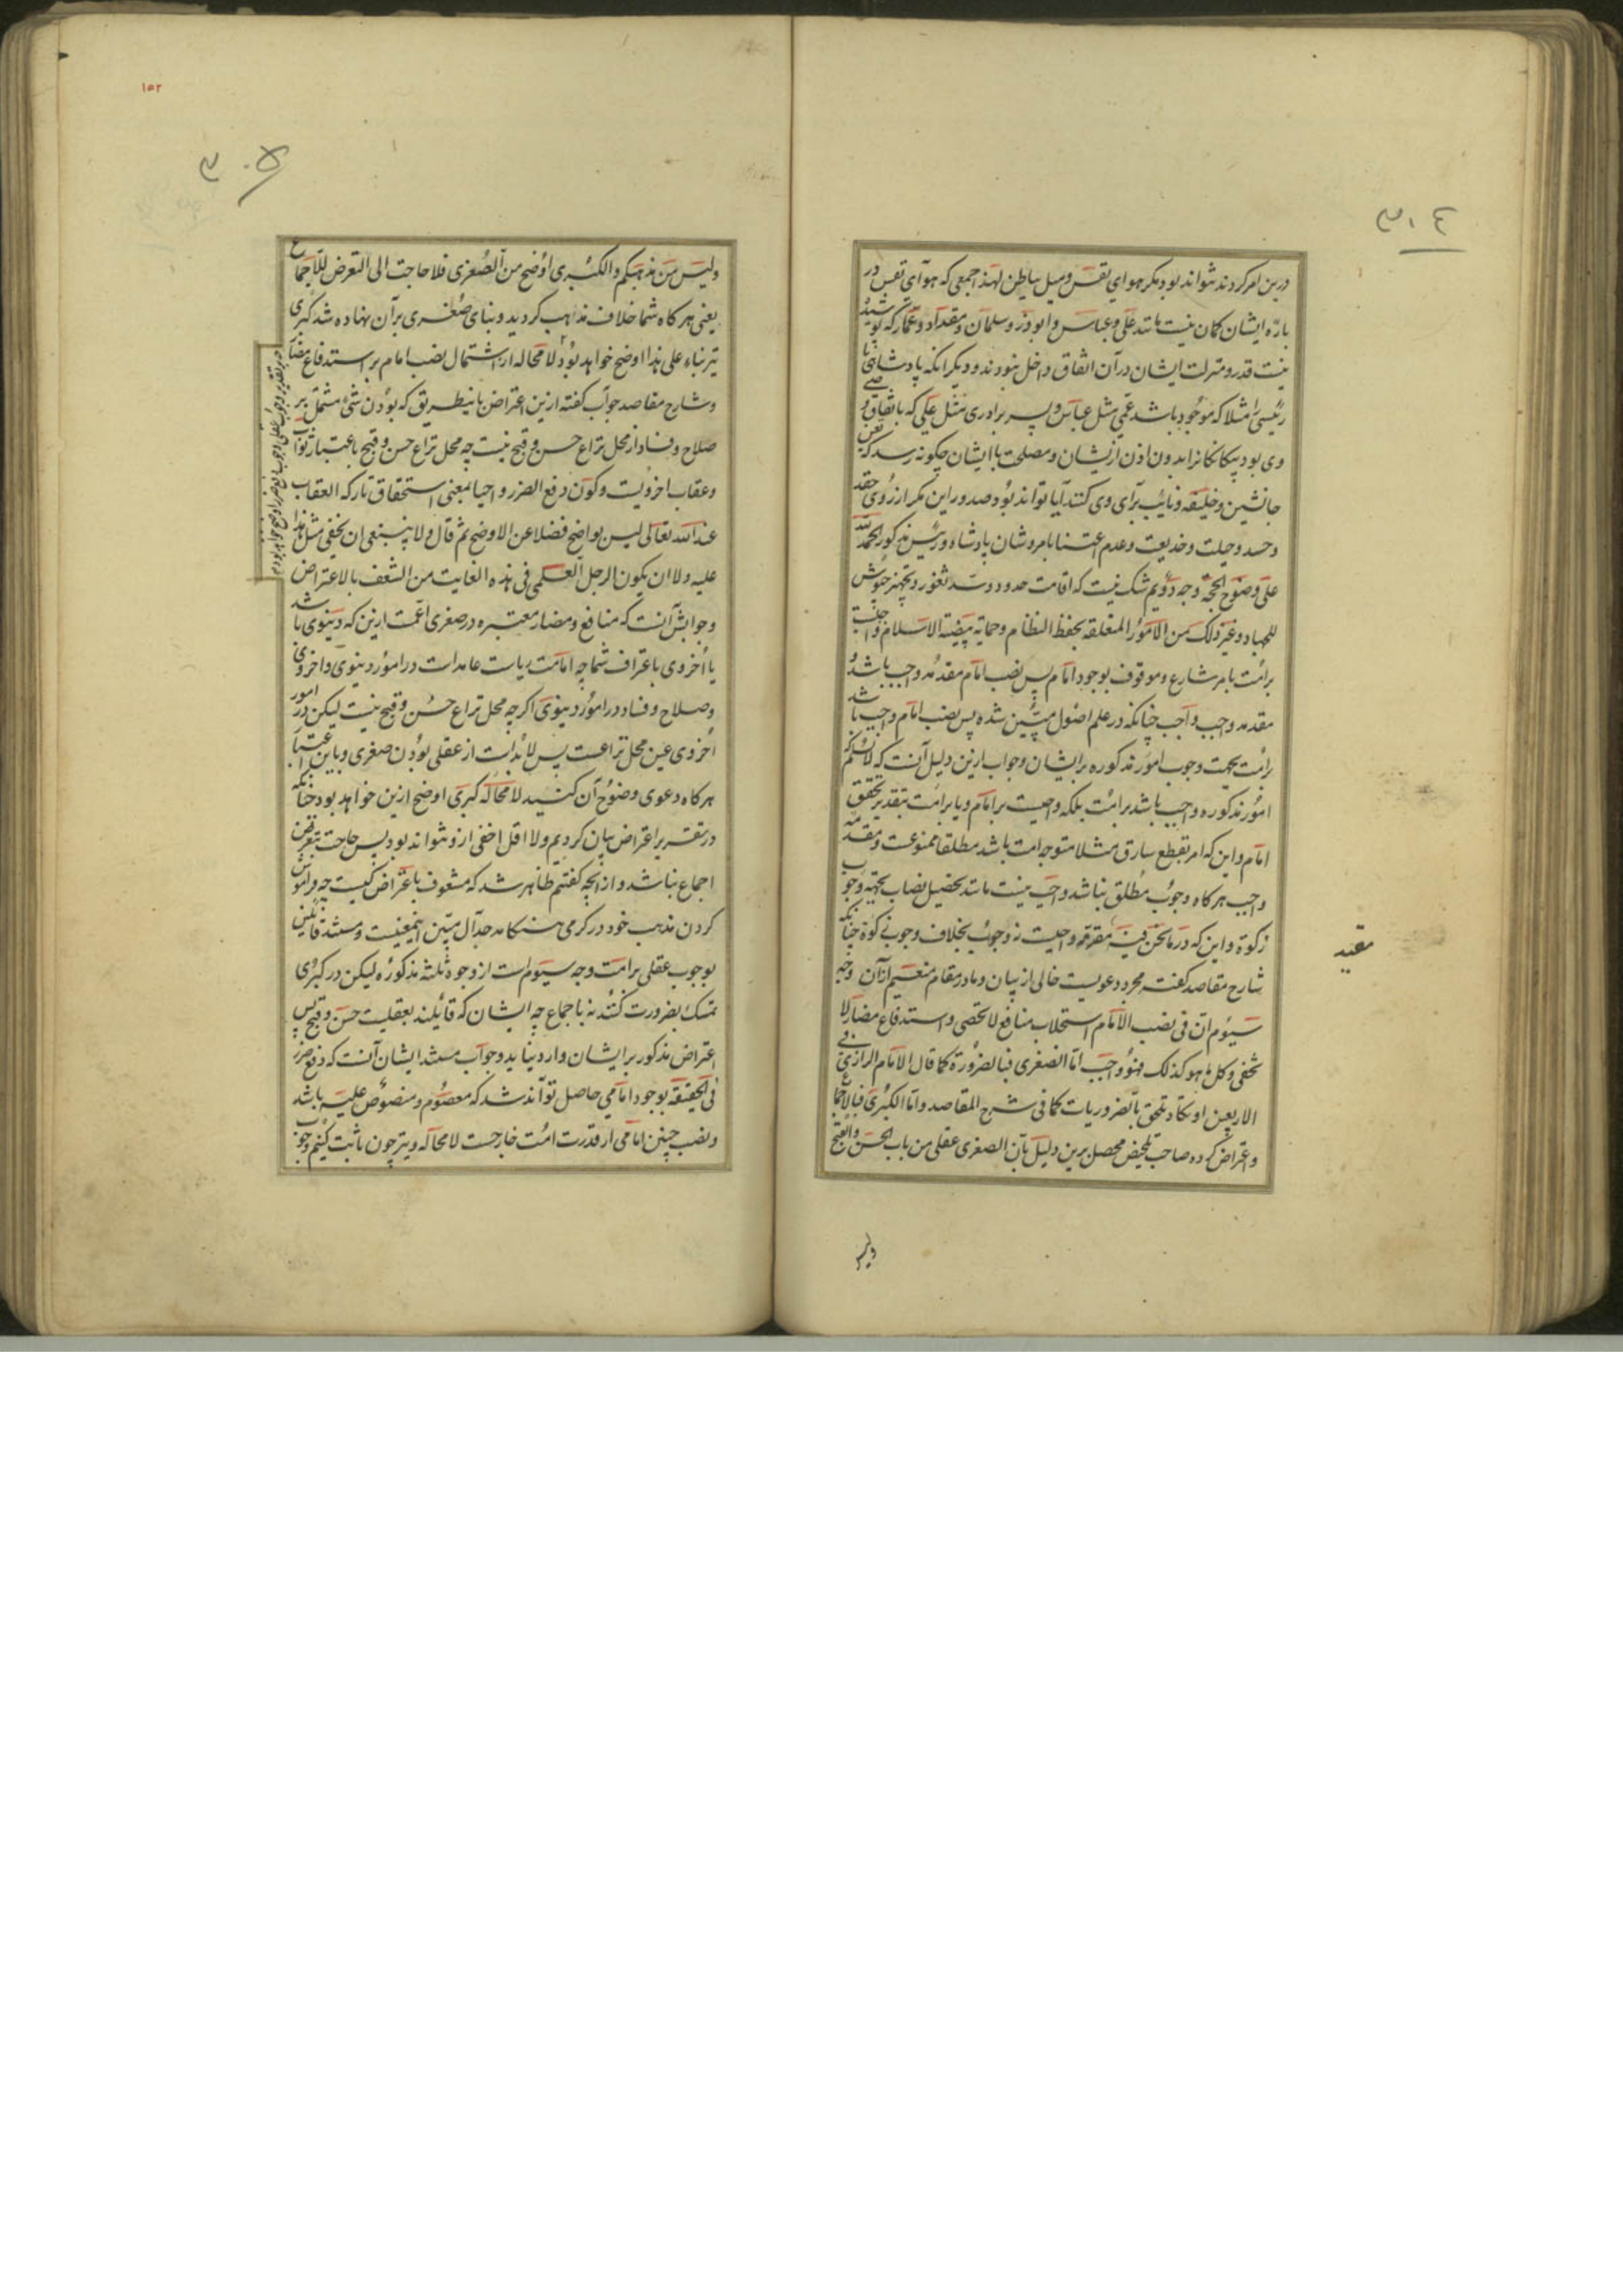 ٣٠٤
درین امر کردند نتواند بود مگر هوای نفس و میل بباطن لهذا جمعی که هوای نفس در
باره ایشان کمان نیست مانند علی و عباس و ابوذر و سلمان و مقداد و عمار که پوشیده
نیست قدر و منزلت ایشان در آن اتفاق داخل نبودند و دیگر انکه پادشاهی یا
رئیسی را مثلا که موجود باشد عمی مثل عباس و پسر برادری مثل علی که باتفاق
وی بود بیکانکانرا بدون اذن ازیشان و مصلحت باایشان چکونه رسد که تعیین
جانشین و خلیفه و نایب برای وی کنند آیا تواند بود صدور این مکر از روی حقد
و حسد و حیلت و خدیعت و عدم اعتنا بامر و شان پادشاه و رئیس مذکور الحمد لله
علی وضوح الحجة وجه دویم شک نیست که اقامت حدود و سد ثغور و تجهیز جیوش
للجهاد و غیر ذلک من الامور المتعلقه بحفظ النظام و حمایة بیضة الاسلام واجبست
برامت بامر شارع و موقوف بوجود امام پس نصب امام مقدمه واجب باشد و
مقدمه واجب واجب چنانکه در علم اصول مبین شده پس نصب امام واجب باشد
برامت بجهت وجوب امور مذکوره برایشان و جواب ازین دلیل آنست که لانسلم که
امور مذکوره واجب باشد برامت بلکه واجبست بر امام و یا برامت بتقدیر تحقق
امام و این که امر بقطع سارق مثلا متوجه امت باشد مطلقا ممنوعست و مقدمه
واجب هرکاه وجوب مطلق نباشد واجب نیست مانند تحصیل نصاب بجهة وجوب
زکوة و این که در مانحن فیه مقدمه واجبست نه وجوب بخلاف وجوب زکوة چنانکه
شارح مقاصد کفته مجرد دعویست خالی از بیان و ما در مقام منعیم از آن وجه
سیوم ان فی نصب الامام استجلاب منافع لا تحصی و استدفاع مضار لا
تخفی و کل ما هو کذلک فهو واجب اما الصغری فبالضرورة کما قال الامام الرازی فی
الاربعین او تکاد تلحق بالضروریات کما فی شرح المقاصد و اما الکبری فبالاجماع
و اعتراض کرده صاحب تلخیص محصل برین دلیل بان الصغری عقلی من باب الحسن و القبح
ولیس
مقید
١٥٢
٣٠٥
و لیس من مذهبکم و الکبری اوضح من الصغری فلا حاجت الی التعرض للاجماع
یعنی هرکاه شما خلاف مذهب کردید و بنای صغری بر آن نهاده شد کبری
نیز بناء علی هذا اوضح خواهد بود لا محاله از اشتمال نصب امام بر استدفاع مضار
و شارح مقاصد جواب کفته ازین اعتراض باینطریق که بودن شیء مشتمل بر
صلاح و فساد از محل نزاع حسن و قبح نیست چه محل نزاع حسن و قبح باعتبار ثواب
و عقاب اخرویست و کون دفع الضرر واجبا بمعنی استحقاق تارکه العقاب
عند الله تعالی لیس بواضح فضلا عن الاوضح ثم قال و لا ینبغی ان یخفی مثل هذا
علیه و لا ان یکون الرجل العلمی فی هذه الغایت من الشغف بالاعتراض
و جوابش آنست که منافع و مضار معتبره در صغری اعمست ازین که دنیوی باشد
یا اخروی باعتراف شما چه امامت ریاست عامه است در امور دنیوی و اخروی
و صلاح و فساد در امور دنیوی اکرچه محل نزاع حسن و قبح نیست لیکن در امور
اخروی عین محل نزاعست پس لابد است از عقلی بودن صغری و باین اعتبار
هرکاه دعوی وضوح آن کنید لا محاله کبری اوضح ازین خواهد بود چنانکه
در تقریر اعتراض بیان کردیم و لا اقل اخفی ازو نتواند بود پس حاجت بتعرض
اجماع نباشد و از انچه کفتیم ظاهر شد که مشعوف باعتراض کیست چه فراموش
کردن مذهب خود در کرمی هنکامه جدال مبین اینمعنیست و مستند قائلین
بوجوب عقلی برامت وجه سیوم است از وجوه ثلثه مذکوره لیکن در کبری
تمسک بضرورت کنند نه باجماع چه ایشان که قائلند بعقلیت حسن و قبح پس
اعتراض مذکور بر ایشان وارد نیاید و جواب مستند ایشان آنست که دفع ضرر
فی الحقیقه بوجود امامی حاصل تواند شد که معصوم و منصوص علیه باشد
و نصب چنین امامی از قدرت امت خارجست لا محاله و نیز چون ثابت کنیم وجوب